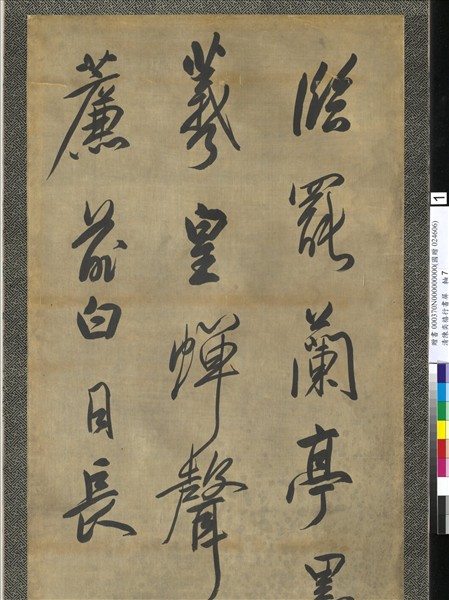 臨罷蘭亭墨
羲皇蟬聲
簾前白日長
1
贈書000370N000000000(國贈 024606)
清陳奕禧行書屏 軸7